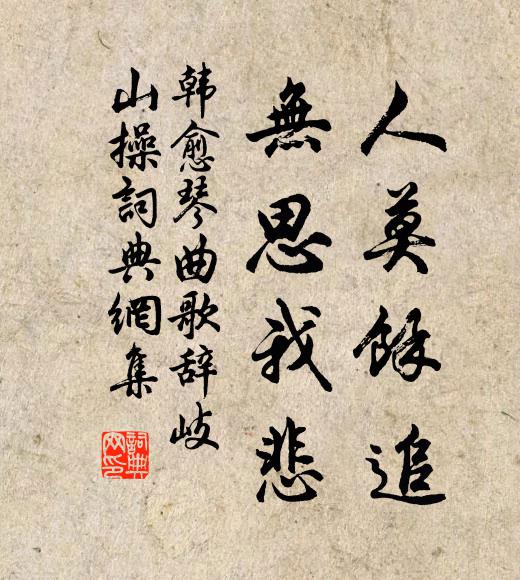 人莫餘追
無思我悲
韩愈琴曲歌辞岐
山操詞典網集
詞典
网印